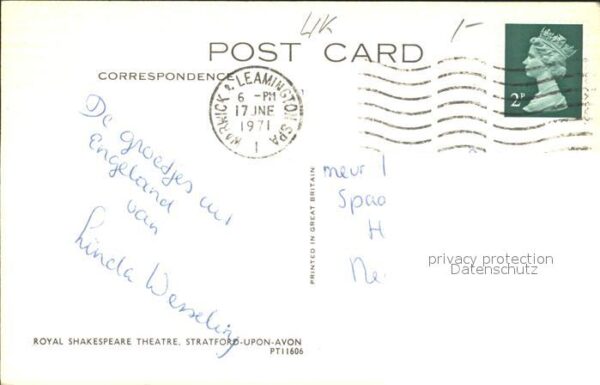 4K
1-
POST CARD
CORRESPONDENCE
WARWICK & LEAMINGTON SPA
6 - PM
17 JNE
1971
1
2P
De groetjes uit
Engeland
van
Linda Wesseling
PRINTED IN GREAT BRITAIN
meur
Spao
H
Ne
privacy protection
Datenschutz
ROYAL SHAKESPEARE THEATRE, STRATFORD-UPON-AVON
PT11606